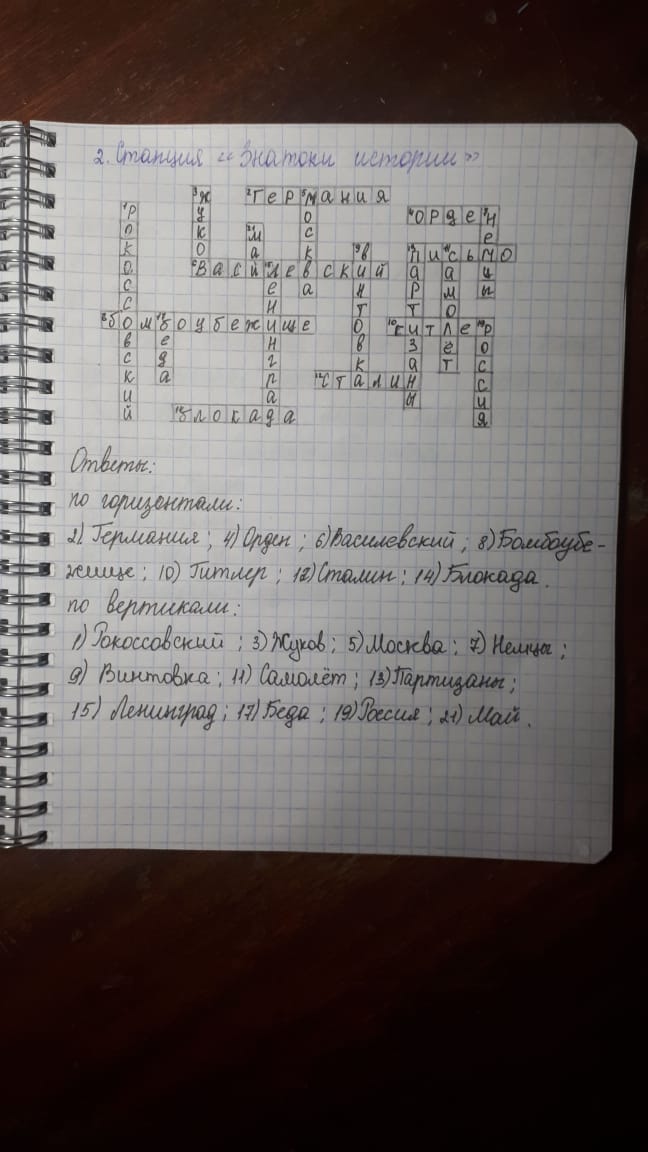 2. Станция «Знатоки истории»
Германия
Жуков
Москва
Орден
Немцы
Рокоссовский
Май
Винтовка
Письмо
Партизаны
Самолёт
Василевский
Ленинград
Бомбоубежище
Беда
Гитлер
Россия
Сталин
Блокада
Ответы:
по горизонтали:
2) Германия; 4) Орден; 6) Василевский; 8) Бомбоубе-
жище; 10) Гитлер; 12) Сталин; 14) Блокада.
по вертикали:
1) Рокоссовский; 3) Жуков; 5) Москва; 7) Немцы;
9) Винтовка; 11) Самолёт; 13) Партизаны;
15) Ленинград; 17) Беда; 19) Россия; 21) Май.